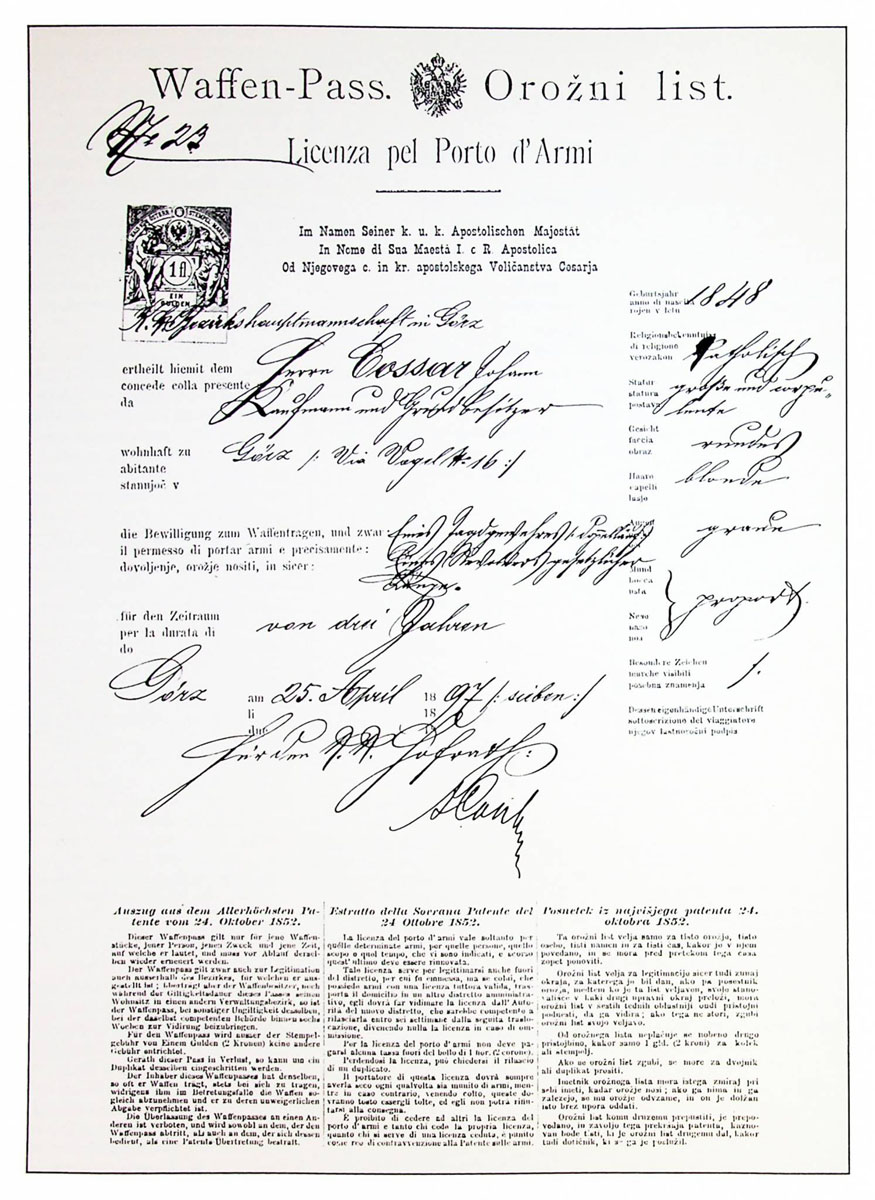 Waffen-Pass. Orožni list.
№ 23
Licenza pel Porto d'Armi
Im Namen Seiner k. u. k. Apostolischen Majestät
In Nome di Sua Maestà I. e R. Apostolica
Od Njegovega c. in kr. apostolskega Veličanstva Cesarja
1 fl
EIN
GULDEN
K. k. Bezirkshauptmannschaft in Görz
ertheilt hiemit dem Herrn Cossar Johann
concede colla presente
da Kaufmann und Grundbesitzer
wohnhaft zu Görz /: Via Vogel № 16 :/
abitante
stanujoč v
die Bewilligung zum Waffentragen, und zwar: Eines Jagdgewehres
il permesso di portar armi e precisamente: Eines Revolvers gesetzlicher
dovoljenje, orožje nositi, in sicer: Länge.
für den Zeitraum
per la durata di von drei Jahren
do
Görz am 25. April 1897 /: sieben :/
li 18
dne
Für den k. k. Hofrath:
Geburtsjahr
anno di nascita 1848
rojen v letu
Religionsbekenntniss
di religione Katholisch
verozakon
Statur
statura große und corpu-
postava lente
Gesicht
faccia rundes
obraz
Haare
capelli blonde
lasje
Augen
graue
Mund
bocca
usta
proport.
Nase
naso
nos
Besondere Zeichen
marche visibili /.
posebna znamenja
Dessen eigenhändige Unterschrift
sottoscrizione del viaggiatore
njegov lastnoročni podpis
Auszug aus dem Allerhöchsten Pa-
tente vom 24. Oktober 1852.
Dieser Waffenpass gilt nur für jene Waffen-
stücke, jener Person, jenen Zweck und jene Zeit,
auf welche er lautet, und muss vor Ablauf dersel-
ben wieder erneuert werden.
Der Waffenpass gilt zwar auch zur Legitimation
auch ausserhalb des Bezirkes, für welchen er aus-
gestellt ist; überträgt aber der Waffenbesitzer, noch
während der Giltigkeitsdauer dieses Passes seinen
Wohnsitz in einen andern Verwaltungsbezirk, so ist
der Waffenpass, bei sonstiger Ungiltigkeit desselben,
bei der daselbst competenten Behörde binnen sechs
Wochen zur Vidirung beizubringen.
Für den Waffenpass wird ausser der Stempel-
gebühr von Einem Gulden (2 Kronen) keine andere
Gebühr entrichtet.
Gerath dieser Pass in Verlust, so kann um ein
Duplikat desselben eingeschritten werden.
Der Inhaber dieses Waffenpasses hat denselben,
so oft er Waffen trägt, stets bei sich zu tragen,
widrigens ihm im Betretungsfalle die Waffen so-
gleich abzunehmen und er zu deren unweigerlichen
Abgabe verpflichtet ist.
Die Überlassung des Waffenpasses an einen An-
deren ist verboten, und wird sowohl an dem, der den
Waffenpass abtritt, als auch an dem, der sich dessen
bedient, als eine Patents Übertretung bestraft.
Estratto della Sovrana Patente del
24 Ottobre 1852.
La licenza del porto d'armi vale soltanto per
quelle determinate armi, per quelle persone, quello
scopo e quel tempo, che vi sono indicati, e scorso
quest'ultimo deve essere rinnovata.
Tale licenza serve per legittimarsi anche fuori
del distretto, per cui fu emmessa, ma se colui, che
possiede armi con una licenza tuttora valida, tras-
porta il domicilio in un altro distretto amministra-
tivo, egli dovrà far vidimare la licenza dall'Auto-
rità del nuovo distretto, che sarebbe competente a
rilasciarla entro sei settimane dalla seguita traslo-
cazione, divenendo nulla la licenza in caso di om-
missione.
Per la licenza del porto d'armi non deve pa-
garsi alcuna tassa fuori del bollo di 1 fior. (2 corone).
Perdendosi la licenza, può chiedersi il rilascio
di un duplicato.
Il portatore di questa licenza dovrà sempre
averla seco ogni qualvolta sia munito di armi, men-
tre in caso contrario, venendo colto, queste do-
vranno tosto esergli tolte, ed egli non potrà rifiu-
tarsi alla consegna.
È proibito di cedere ad altri la licenza del
porto d'armi e tanto chi cede la propria licenza,
quanto chi si serve di una licenza ceduta, è punito
come reo di contravvenzione alla Patente sulle armi.
Posnetek iz najvišjega patenta 24.
oktobra 1852.
Ta orožni list velja samo za tisto orožje, tisto
osebo, tisti namen in za tisti čas, kakor je v njem
povedano, in se mora pred pretekom tega časa
zopet ponoviti.
Orožni list velja za legitimacijo sicer tudi zunaj
okraja, za katerega je bil dan, ako pa posestnik
orožja, medtem ko je ta list veljaven, svoje stano-
vališče v kaki drugi upravni okraj preloži, mora
orožni list v šestih tednih oblastniji ondi pristojni
podnesti, da ga vidira; ako tega ne stori, zgubi
orožni list svojo veljavo.
Od orožnega lista neplačuje se nobeno drugo
pristojbino, kakor samo 1 gld. (2 kroni) za kolek
ali štempelj.
Ako se orožni list zgubi, se more za dvojnik
ali duplikat prositi.
Imetnik orožnega lista mora istega zmiraj pri
sebi imeti, kadar orožje nosi; ako ga nima in ga
zalezejo, se mu orožje odvzame, in on je dolžan
isto brez upora oddati.
Orožni list komu druzemu prepustiti, je prepo-
vedano, in zavoljo tega prekršaja patenta, kazno-
van bode tisti, ki je orožni list drugemu dal, kakor
tudi dotičnik, ki se ga je poslužil.